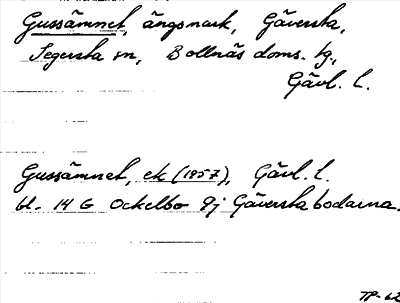 Gussämnet, ängsmark, Gäversta,
Segersta sn, Bollnäs doms. tg,
Gävl. l.
Gussämnet, ek (1957), Gävl. l.
bl. 14 G Ockelbo 9j Gäverstabodarna.
TP-62